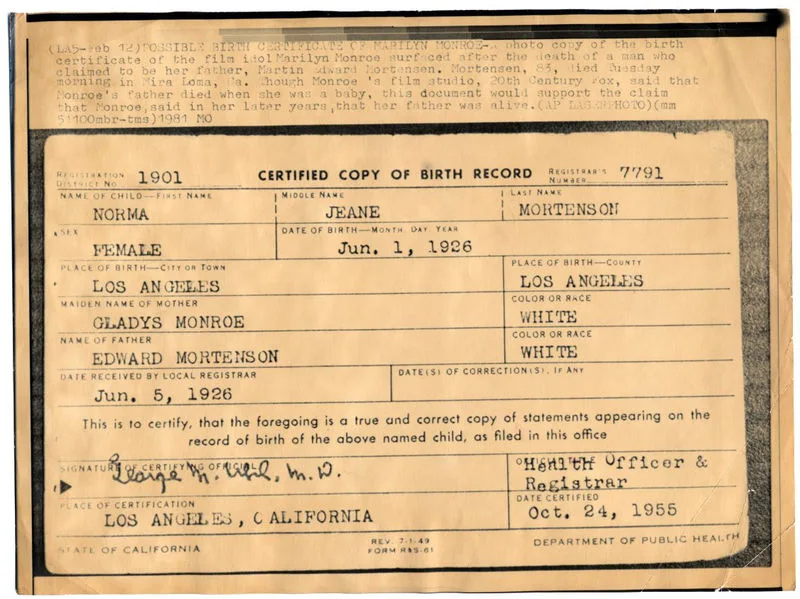 (LA5-Feb 12)POSSIBLE BIRTH CERTIFICATE OF MARILYN MONROE-A photo copy of the birth
certificate of the film idol Marilyn Monroe surfaced after the death of a man who
claimed to be her father, Martin Edward Mortensen. Mortensen, 83, died Tuesday
morning in Mira Loma, Ca. Though Monroe 's film studio, 20th Century Fox, said that
Monroe's father died when she was a baby, this document would support the claim
that Monroe,said in her later years,that her father was alive.(AP LASERPHOTO)(mm
51100mbr-tms)1981 MO
REGISTRATION DISTRICT NO 1901 CERTIFIED COPY OF BIRTH RECORD REGISTRAR'S NUMBER 7791
NAME OF CHILD—FIRST NAME MIDDLE NAME LAST NAME
NORMA JEANE MORTENSON
SEX DATE OF BIRTH—MONTH, DAY, YEAR
FEMALE Jun. 1, 1926
PLACE OF BIRTH—CITY OR TOWN PLACE OF BIRTH—COUNTY
LOS ANGELES LOS ANGELES
MAIDEN NAME OF MOTHER COLOR OR RACE
GLADYS MONROE WHITE
NAME OF FATHER COLOR OR RACE
EDWARD MORTENSON WHITE
DATE RECEIVED BY LOCAL REGISTRAR DATE(S) OF CORRECTION(S), IF ANY
Jun. 5, 1926
This is to certify, that the foregoing is a true and correct copy of statements appearing on the
record of birth of the above named child, as filed in this office
SIGNATURE OF CERTIFYING OFFICIAL
George M. Uhl, M.D. Health Officer &
Registrar
PLACE OF CERTIFICATION DATE CERTIFIED
LOS ANGELES, CALIFORNIA Oct. 24, 1955
STATE OF CALIFORNIA REV. 7-1-49 FORM R&S-61 DEPARTMENT OF PUBLIC HEALTH